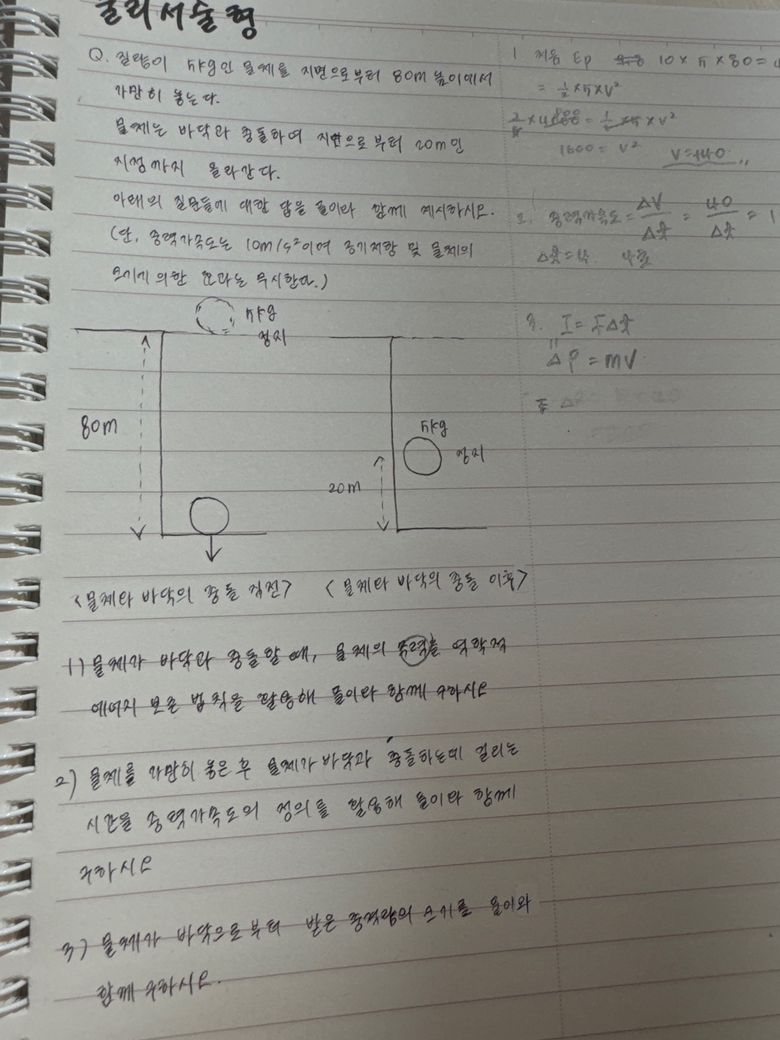 물리서술형
Q. 질량이 5kg인 물체를 지면으로부터 80m 높이에서
가만히 놓는다.
물체는 바닥과 충돌하여 지면으로부터 20m인
지점까지 올라간다.
아래의 질문들에 대한 답을 풀이와 함께 제시하시오.
(단, 중력가속도는 10m/s²이며 공기저항 및 물체의
크기에 의한 효과는 무시한다.)
5kg
정지
80m
5kg
정지
20m
<물체와 바닥의 충돌 직전> <물체와 바닥의 충돌 이후>
1) 물체가 바닥과 충돌할 때, 물체의 속력을 역학적
에너지 보존 법칙을 활용해 풀이와 함께 구하시오
2) 물체를 가만히 놓은 후 물체가 바닥과 충돌하는데 걸리는
시간을 중력가속도의 정의를 활용해 풀이와 함께
구하시오
3) 물체가 바닥으로부터 받은 충격량의 크기를 풀이와
함께 구하시오.
1 처음 Ep 10×5×80=
= ½×5×V²
2/5×4000 = ½×5×V²
1600 = V² V=40
2. 중력가속도 = ΔV/Δt = 40/Δt = 1
Δt=4 4초
3. I = FΔt
=
ΔP = mV